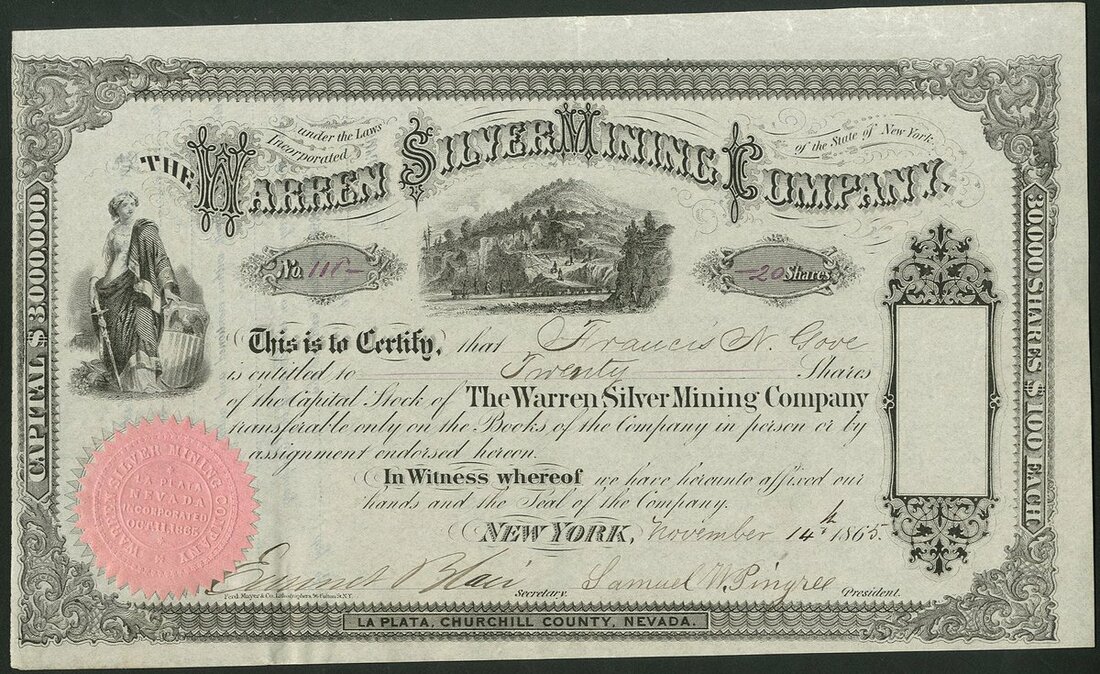 Incorporated under the Laws of the State of New York.
THE WARREN SILVER MINING COMPANY.
No. 118 20 Shares
CAPITAL $3000,000
30,000 SHARES $100 EACH
This is to Certify, that Francis N. Gove
is entitled to Twenty Shares
of the Capital Stock of The Warren Silver Mining Company
transferable only on the Books of the Company in person or by
assignment endorsed hereon.
In Witness whereof we have hereunto affixed our
hands and the Seal of the Company.
NEW YORK, November 14th 1865.
WARREN SILVER MINING COMPANY
LA PLATA
NEVADA
INCORPORATED
1865
Emmet Blair Secretary. Samuel W. Pingree President.
Ferd. Mayer & Co. Lithographers, 96 Fulton St. N.Y.
LA PLATA, CHURCHILL COUNTY, NEVADA.